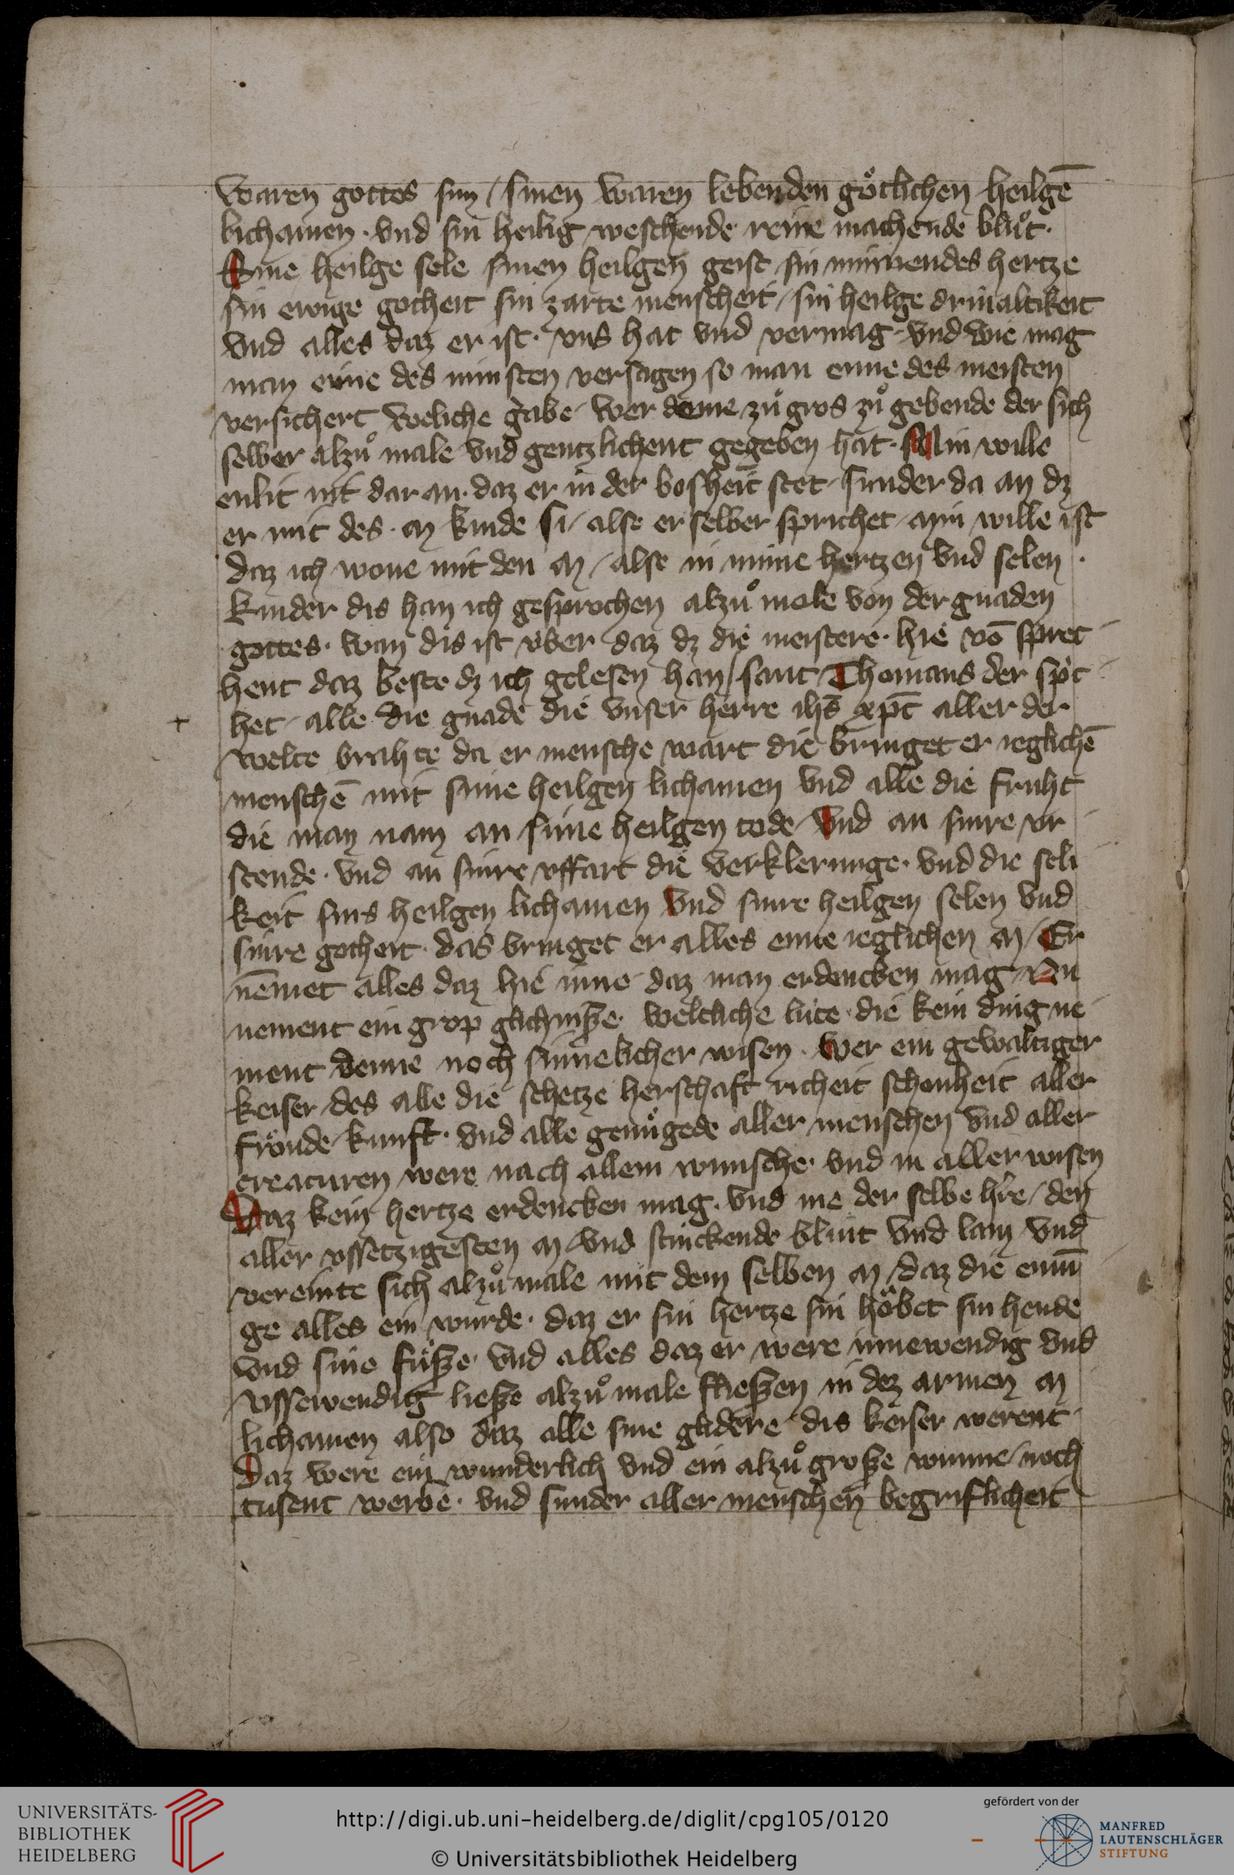 waren gottes sun / sinen waren lebenden goͤtlichen heilgē
lichamen · vnd sin heilig weschende reine machende bluͦt ·
Sine heilge sele sinen heilgen geist sin minnendes hertze
sin ewige gotheit sin zarte menscheit / sin heilge drinaltikeit
vnd alles daz er ist · vns hat vnd vermag · vnd wie mag
man eine des minsten versagen so man eine des meisten
versichert weliche gabe · wer deme zuͦ gros zuͦ gebende der sich
selber alzuͦ male vnd gentzlichent gegeben hat · Min wille
enlit nit dar an · daz er in der bosheit stet · sunder da an dz
er mit des · m kinde si / alse er selber sprichet · min wille ist
daz ich wone mit den m / alse in mime hertzen vnd selen ·
kinder dis han ich gesprochen alzuͦ male von der gnaden
gottes · wan dis ist vber daz dz die meistere · hie vō spre
hent daz beste dz ich gelesen han / sant Thomans der sp't
het · alle die gnade die vnser herre ihs xpc aller der
welte brahte da er mensche wart die bringet er ieglichē
menschē mit sime heilgen lichamen vnd alle die fruht
die man nam an sime heilgen tode · vnd an sinre vr
stende · vnd an sinre vffart die verklerunge · vnd die seli
keit sins heilgen lichamen vnd sinre heilgen selen vnd
sinre gotheit · das bringet er alles eime ieglichen m / Er
nēmet alles daz hie inne · daz man erdencken mag · Nu
nement ein grop glichniße · weltliche lúte · die kein ding ne
ment denne noch sinnelicher wisen · wer ein gewaltiger
keiser / des alle die schetze herschaft richeit schonheit aller
froͤude kunft · vnd alle genuͤgede aller menschen vnd aller
creaturen were nach allem wunsche · vnd in aller wisen
Daz kein hertze erdencken mag · vnd me der selbe h're / den
aller vssetzigesten m / vnd stinckende blint vnd lam vnd
vereinte sich alzuͦ male mit dem selben m / daz die einū
ge alles ein wurde · daz er sin hertze sin hoͤbet sin hende
vnd sine fuͤsze · vnd alles daz er were innewendig vnd
vssewendig ließe alzuͦ male fließen in dez armen m
lichamen also daz alle sine glidere dis keiser werent ·
Daz were ein wunderlich vnd ein alzuͦ große minne / noch
tusent werbe · vnd sunder aller menschen begriflicheit
UNIVERSITÄTS-
BIBLIOTHEK
HEIDELBERG
http://digi.ub.uni-heidelberg.de/diglit/cpg105/0120
© Universitätsbibliothek Heidelberg
gefördert von der
MANFRED
LAUTENSCHLÄGER
STIFTUNG